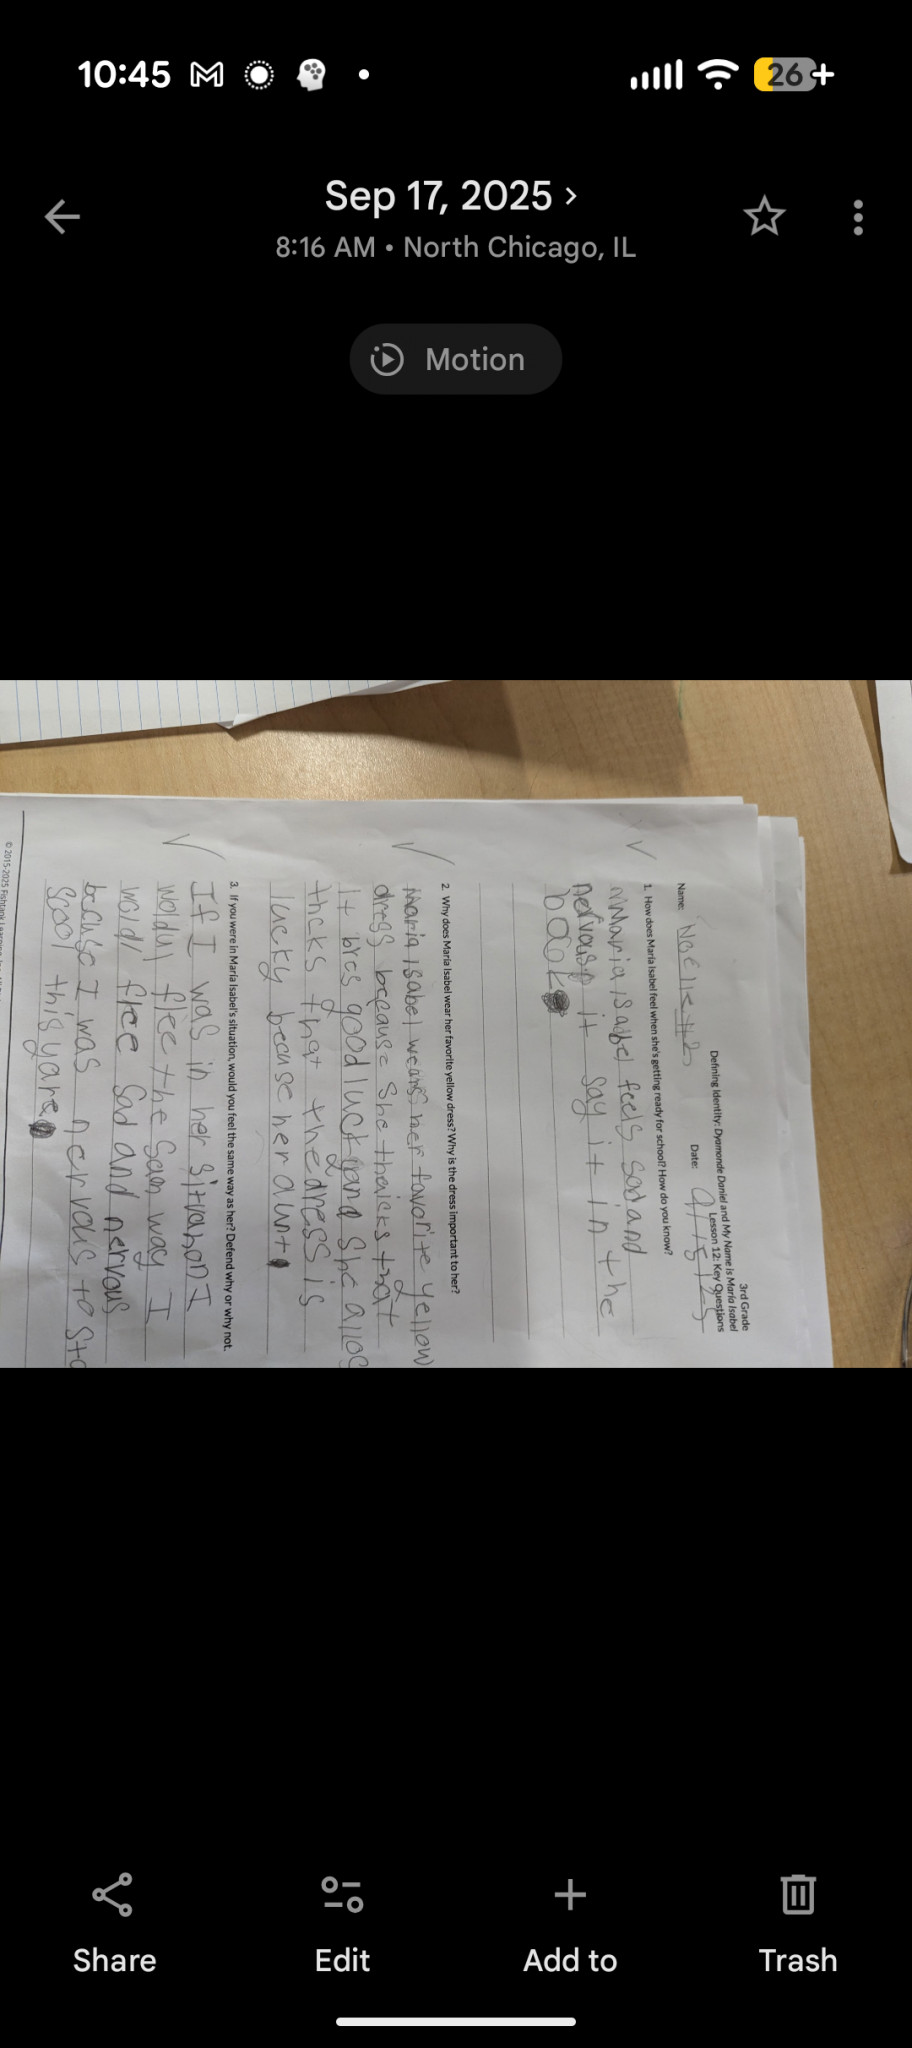 10:45
26
Sep 17, 2025
8:16 AM • North Chicago, IL
Motion
3rd Grade
Defining Identity: Dyamonde Daniel and My Name Is María Isabel
Lesson 12: Key Questions
Name: Date: 9/15/25
1. How does María Isabel feel when she's getting ready for school? How do you know?
Maria isabel feels sad and
nervous it say it in the
book
2. Why does María Isabel wear her favorite yellow dress? Why is the dress important to her?
Maria Isabel wears her favorite yellow
dress because she thaicks that
It bres good luck and she alloc
thcks that the dress is
lucky becuse her aunt
3. If you were in María Isabel's situation, would you feel the same way as her? Defend why or why not.
If I was in her sitvashon I
flee the Sam way I
wold flee Sad and nervous
becuse I was nervous to sta
scool this yare
© 2015-2025 Fishtank Learning
Share
Edit
Add to
Trash